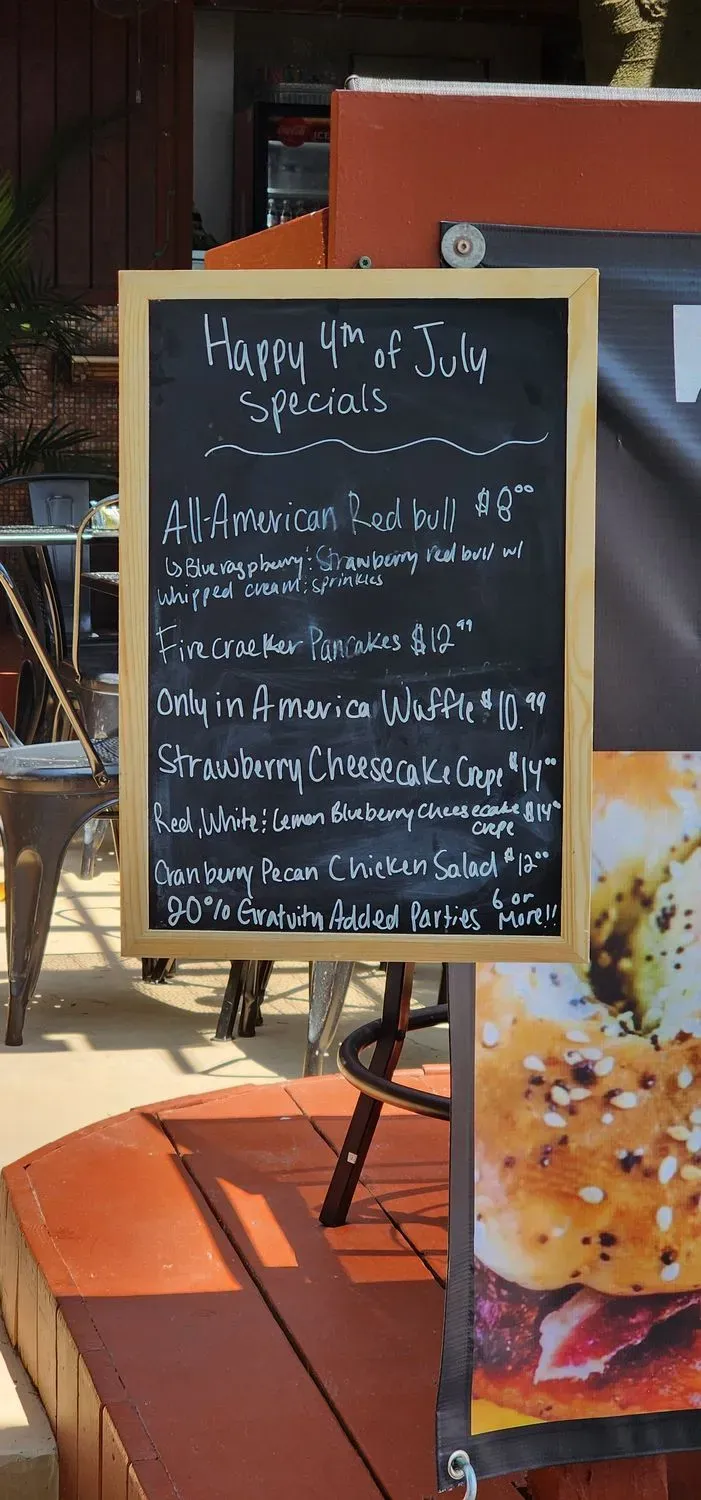 Happy 4th of July
Specials
All-American Red bull $8⁰⁰
↳ Blue raspberry & Strawberry red bull w/
whipped cream & sprinkles
Firecracker Pancakes $12⁹⁹
Only in America Waffle $10.⁹⁹
Strawberry Cheesecake Crepe $14⁰⁰
Red, White & Lemon Blueberry Cheesecake crepe $14⁰⁰
Cranberry Pecan Chicken Salad $12⁰⁰
20% Gratuity Added Parties 6 or More!!
ICE